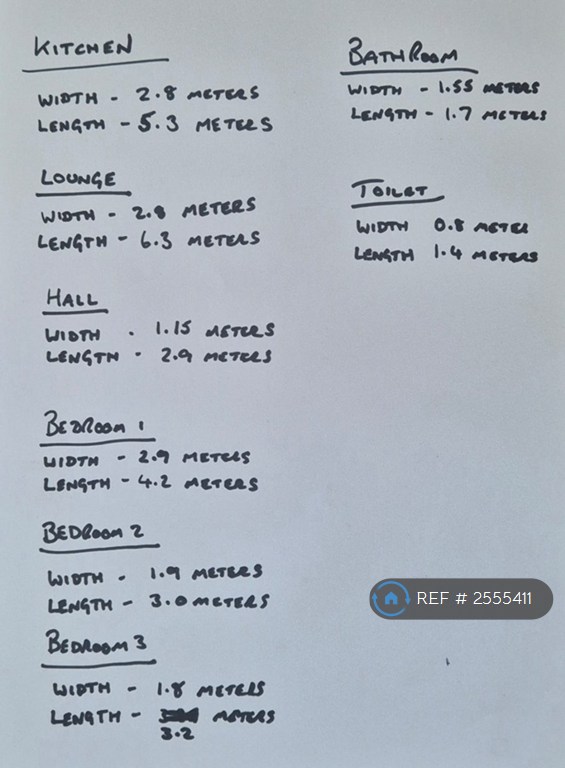 KITCHEN
WIDTH - 2.8 METERS
LENGTH - 5.3 METERS
LOUNGE
WIDTH - 2.8 METERS
LENGTH - 6.3 METERS
HALL
WIDTH - 1.15 METERS
LENGTH - 2.9 METERS
BEDROOM 1
WIDTH - 2.9 METERS
LENGTH - 4.2 METERS
BEDROOM 2
WIDTH - 1.9 METERS
LENGTH - 3.0 METERS
BEDROOM 3
WIDTH - 1.8 METERS
LENGTH - METERS
3.2
BATHROOM
WIDTH - 1.55 METERS
LENGTH - 1.7 METERS
TOILET
WIDTH 0.8 METER
LENGTH 1.4 METERS
REF # 2555411